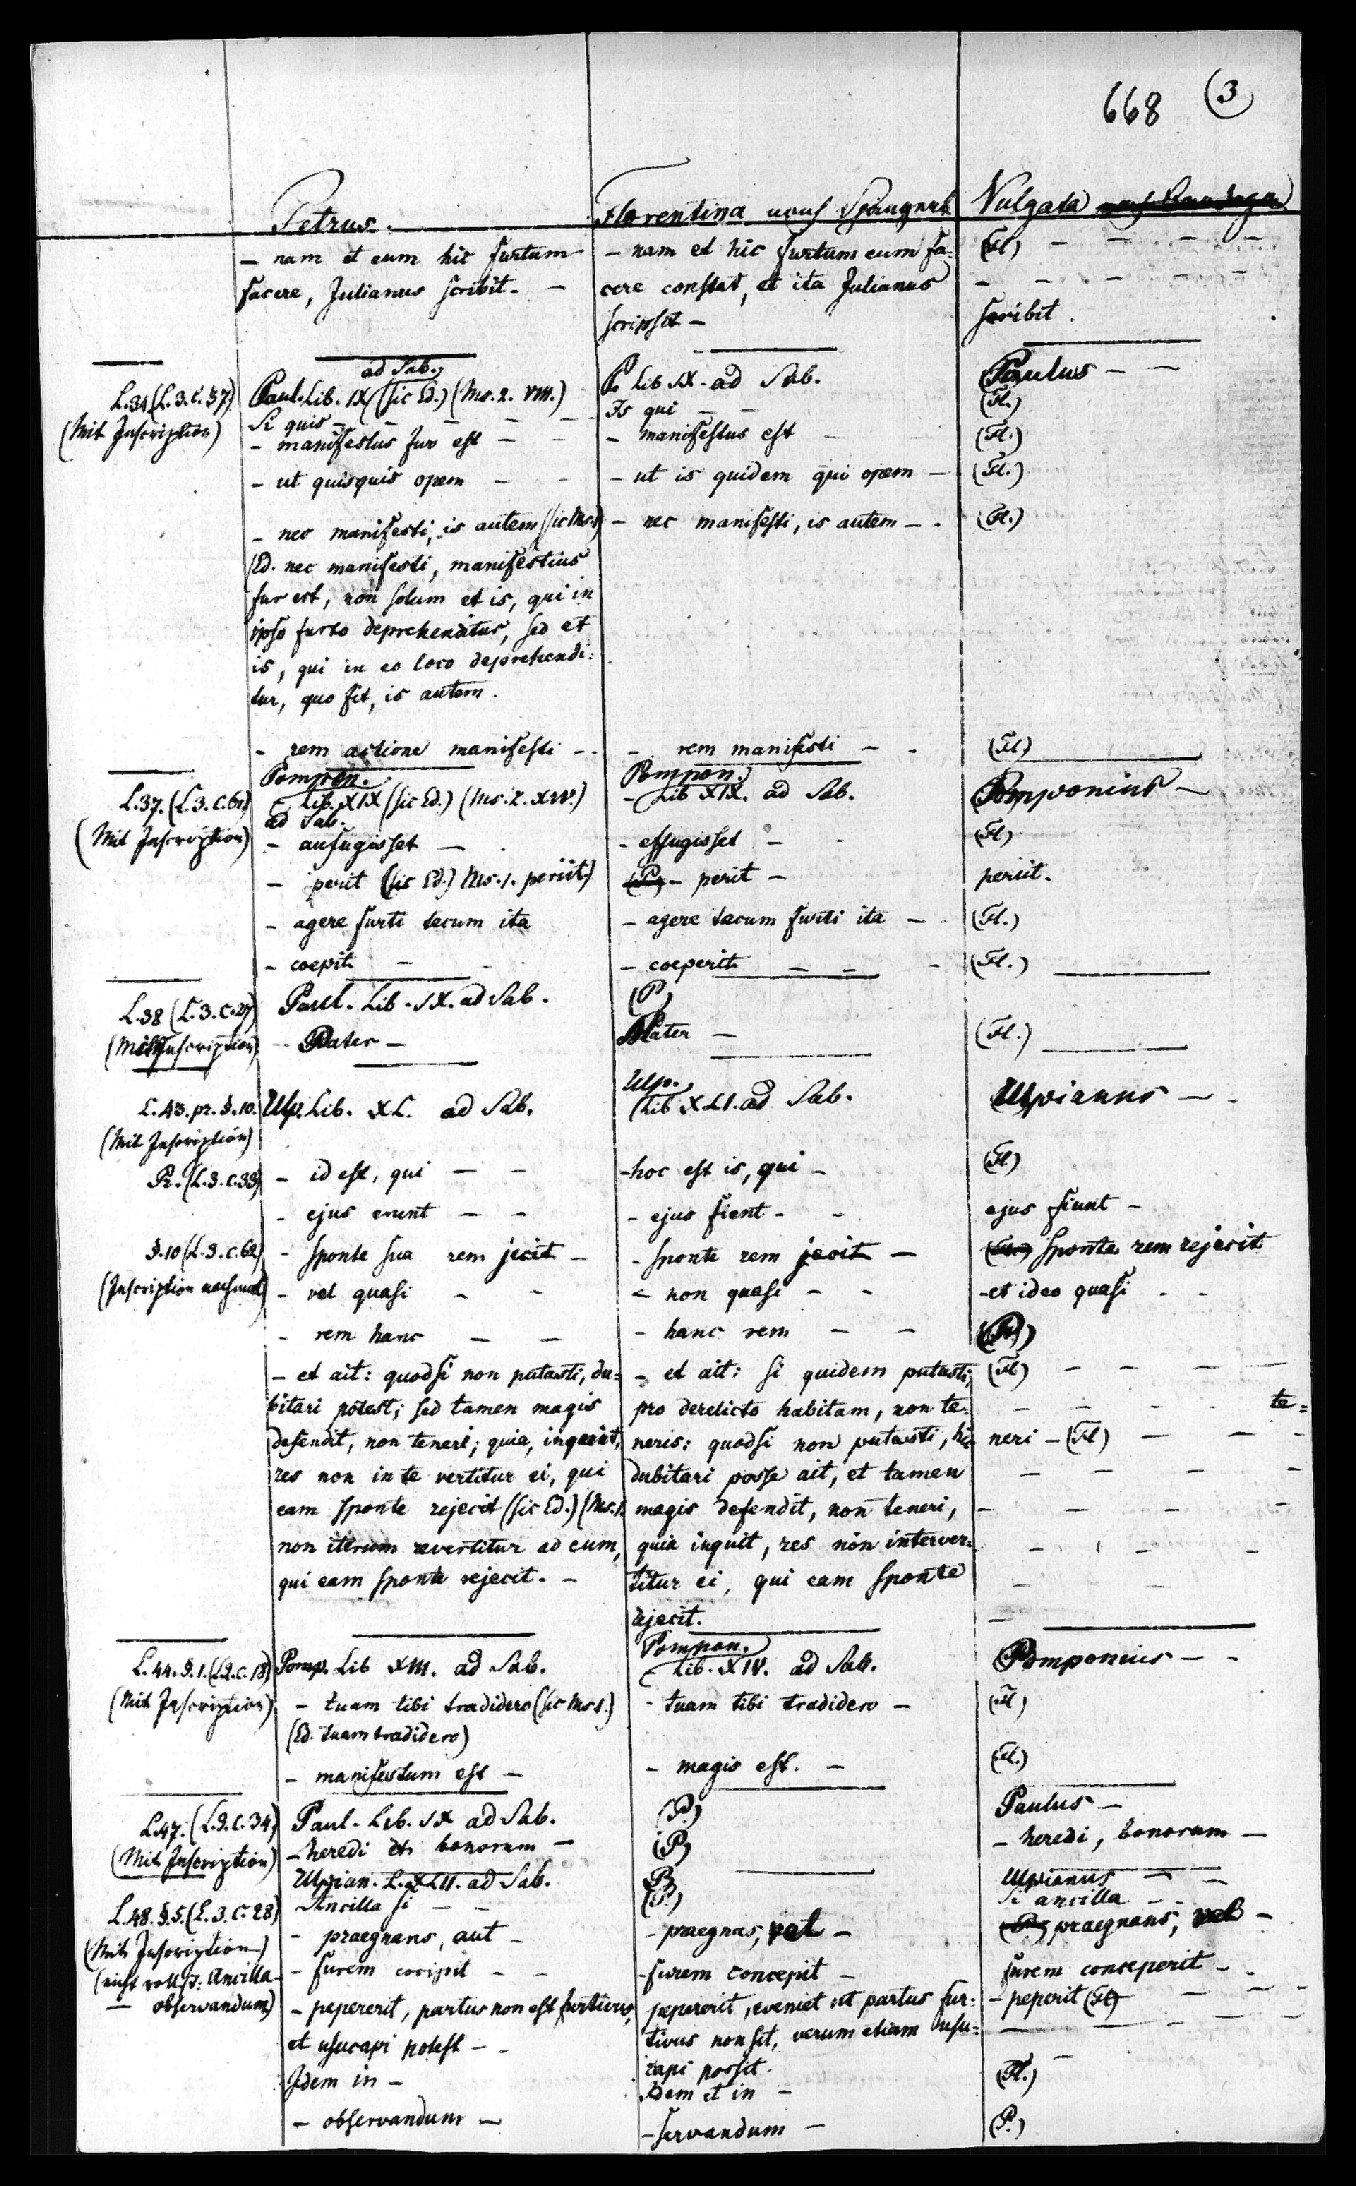 668 (3
Petrus. Florentina nach Spangenb. Vulgata
- nam et eum hic furtum - nam et hic furtum eum fa= (Fl) - - - -
facere, Julianus scribit. - cere constat, et ita Julianus - - - - -
scripsit - scribit.
ad Sab.
L.34 (L.3.c.37) Paul. Lib. IX (sic Ed.) (Ms. 2. VIII.) P. Lib IX. ad Sab. Paulus - -
(Mit Inscription) Si quis - - - - - Is qui - - (Fl.)
- manifestus fur est - - - manifestus est - (Fl.)
- ut quisquis opem - - - ut is quidem qui opem - (Fl.)
- nec manifesti, is autem (sic Ms.1) - nec manifesti, is autem - - (Fl.)
(Ed. nec manifesti, manifestius
fur est, non solum et is, qui in
ipso furto deprehenditur, sed et
is, qui in eo loco deprehendi=
tur, quo fit, is autem.
- rem actione manifesti - - - rem manifesti - - (Fl)
Pompon. Pompon.
L.37. (L.3.c.61) Lib. XIX (sic Ed.) (Ms. 2. XIV.) - Lib XIX. ad Sab. Pomponius -
(Mit Inscription) ad Sab.
- aufugisset - - effugisset - - (Fl)
- perit (sic Ed.) Ms. 1. periit.) (P.) - perit - periit.
- agere furti tecum ita - agere tecum furti ita - - (Fl.)
- coepit - - - coeperit - - - (Fl.)
L.38 (L.3.c.27) Paul. Lib. IX. ad Sab. (P)
(Mit Inscription) - Pater - Mater - (Fl.)
L.43. pr. §.10. Ulp. Lib. XL. ad Sab. Ulp. Lib XLI. ad Sab. Ulpianus - -
(Mit Inscription)
Pr. (L.3.c.39) - id est, qui - - - hoc est is, qui - (Fl)
- ejus erunt - - - ejus fient - - ejus fiunt -
§.10 (L.3.c.62) - sponte sua rem jecit - - sponte rem jecit - sponte rem rejecit
(Inscription nochmal) - vel quasi - - - non quasi - - - et ideo quasi - -
- rem hanc - - - hanc rem - - (P.)
- et ait: quodsi non putasti, du= - et ait: si quidem putasti, (Fl) - - - -
bitari potest; sed tamen magis pro derelicto habitam, non te= - - - - te=
defendit, non teneri; quia, inquit, neris: quodsi non putasti, hic neri - (Fl) - - -
res non in te vertitur ei, qui dubitari posse ait, et tamen - - - -
eam sponte rejecit (sic Ed.) (Ms. 1. magis defendit, non teneri, - - - - -
non iterum revertitur ad eum, quia inquit, res non interver= - - - -
qui eam sponte rejecit. - titur ei, qui eam sponte - -
rejecit. -
Pompon.
L.44. §.1. (L.2.c.18) Pomp. Lib XIII. ad Sab. Lib. XIV. ad Sab. Pomponius - -
(Mit Inscription) - tuam tibi tradidero (sic Ms 1.) - tuam tibi tradidero - (Fl)
(Ed. tuam tradidero)
- manifestum est - - magis est. - (Fl.)
L.47. (L.2.c.34) Paul. Lib. IX ad Sab. (P.) Paulus -
(Mit Inscription) - heredi et bonorum - (P) - heredi, bonorum -
Ulpian. L. XLII. ad Sab. P. Ulpianus - -
L.48. §.5. (L.3.c.28) - Ancilla si - - (P.) Si ancilla - -
(Mit Inscription) - praegnans, aut - - praegnas, vel - praegnans, vel -
(nicht vollst. Ancilla - furem concipit - - - furem concepit - furem conceperit - -
- observandum) - pepererit, partus non est furtivus, pepererit, eveniet ut partus fur= - peperit (Fl) - - -
et usucapi potest - - tivus non sit, verum etiam usu= - - - - -
capi possit. -
Idem in - Idem et in - (Fl.)
- observandum - - servandum - (P.)